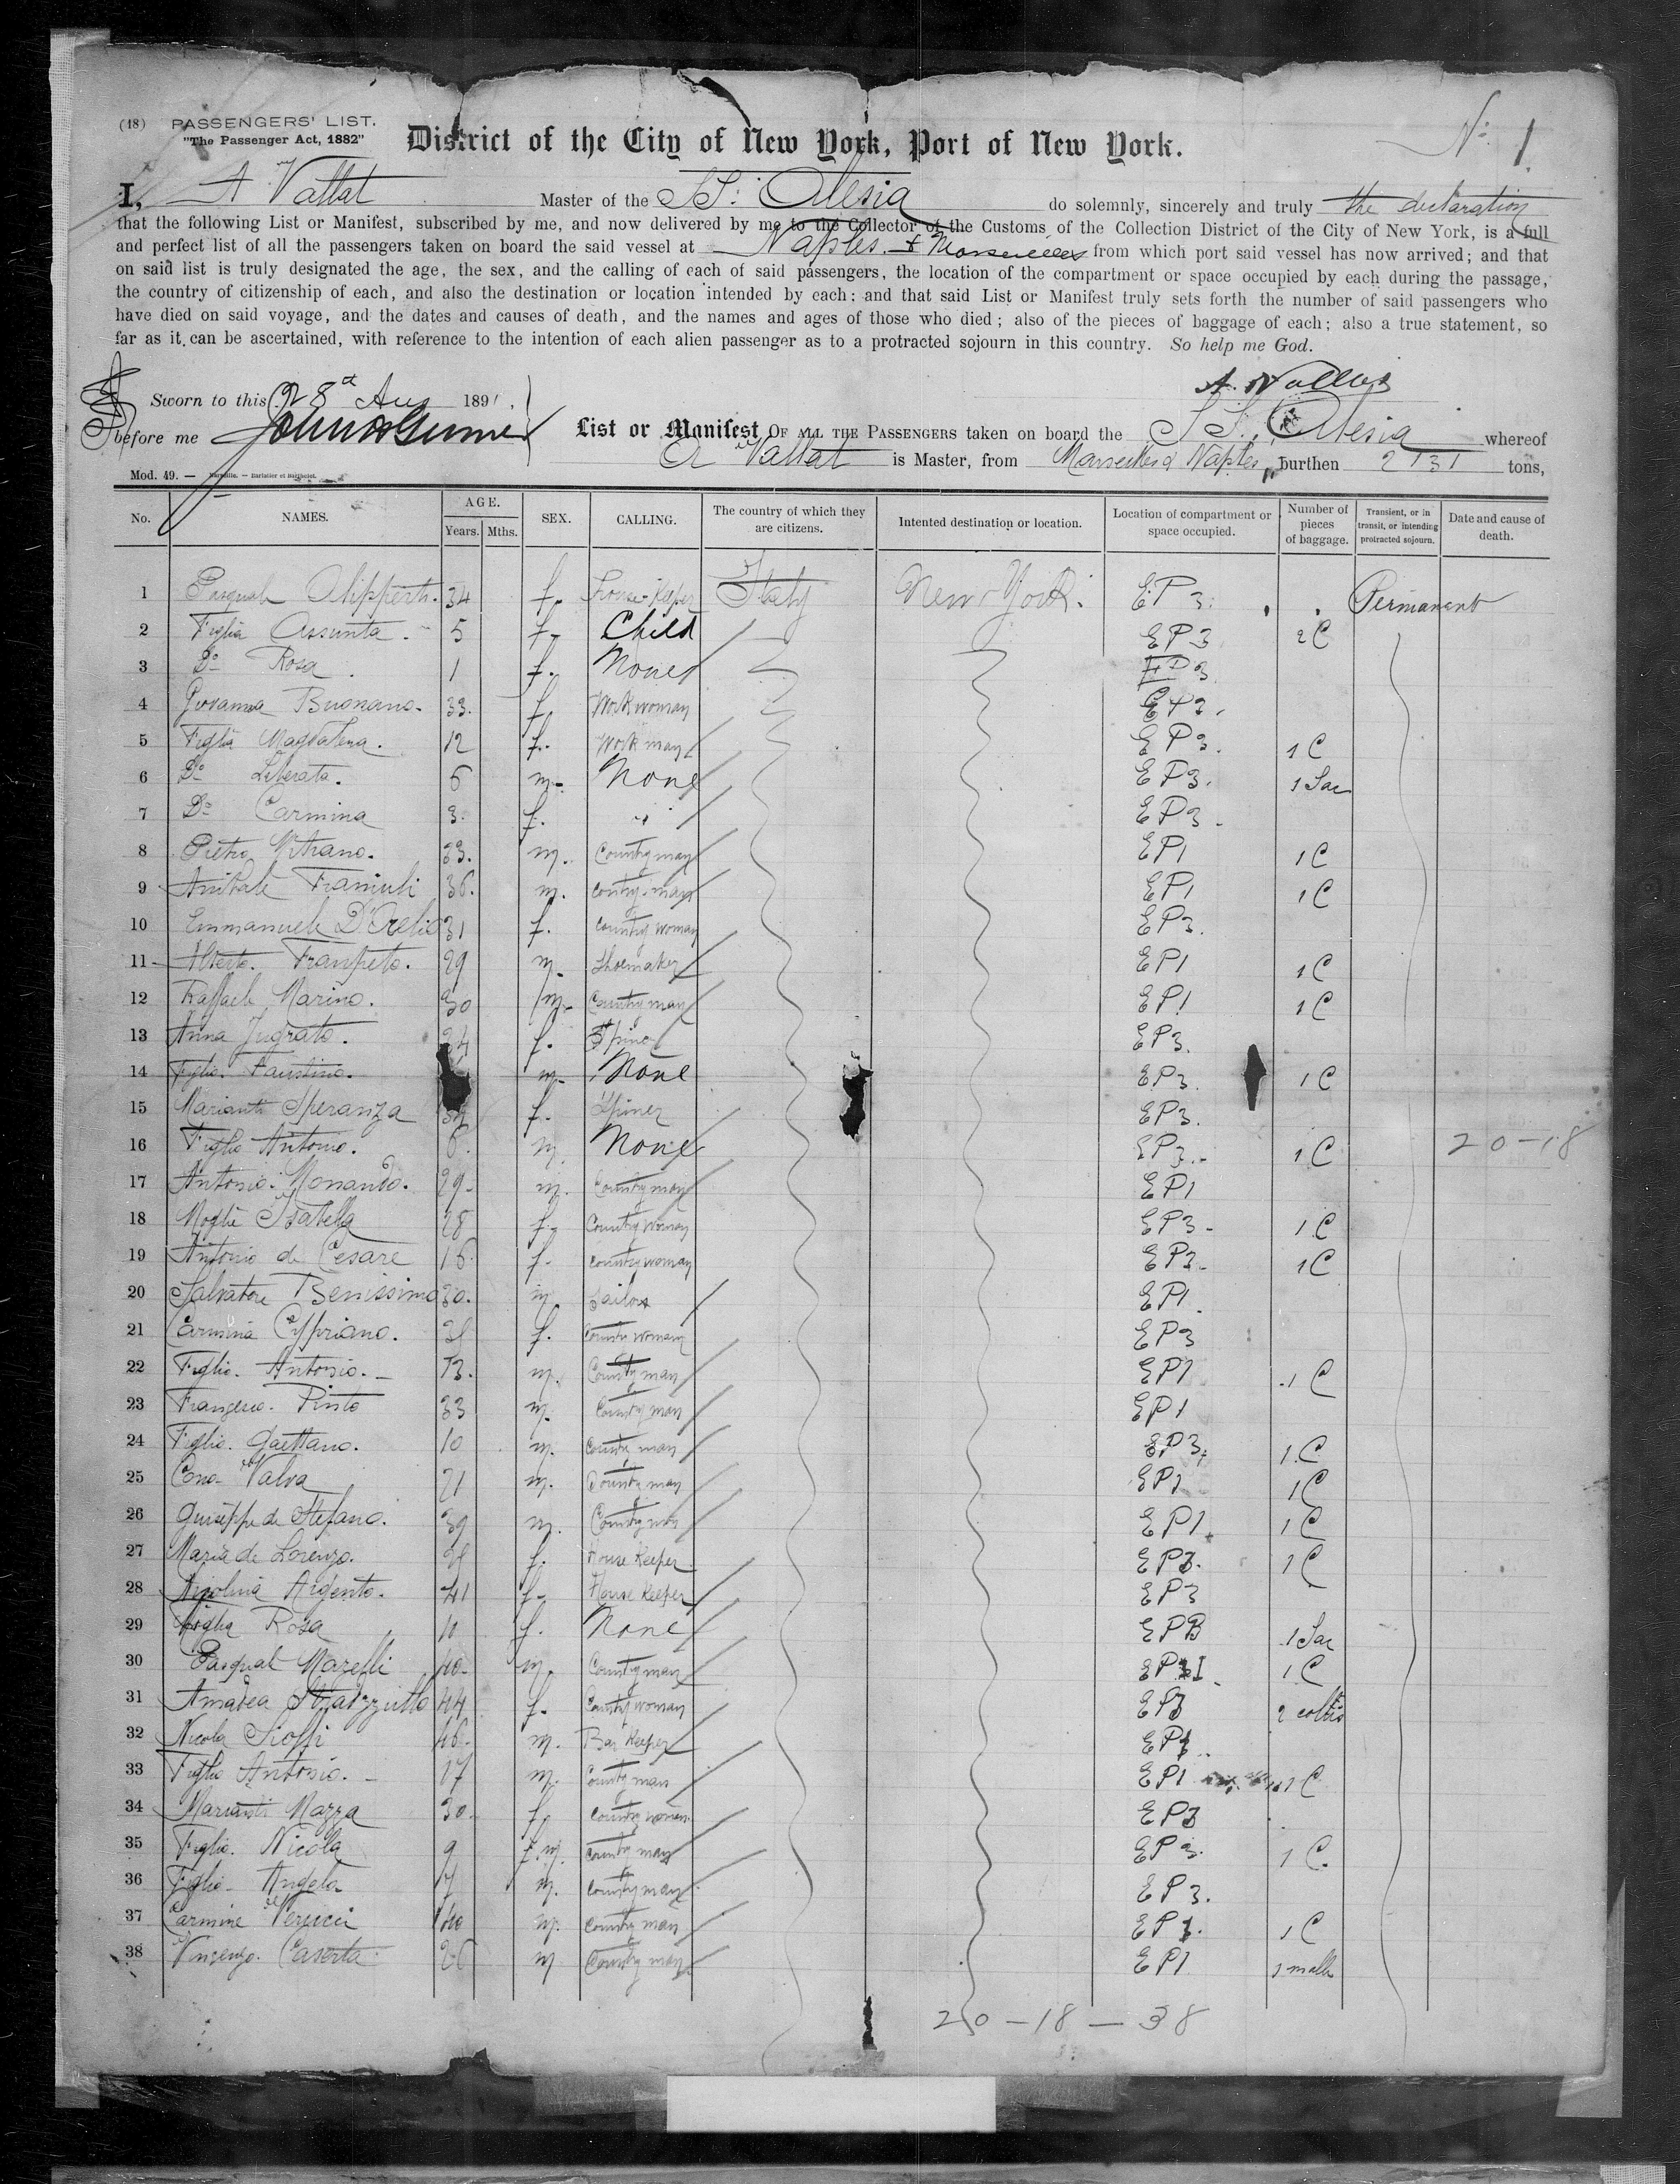 (18) PASSENGERS' LIST.
"The Passenger Act, 1882"
District of the City of New York, Port of New York.
No. 1
I, A Vallat Master of the SS: Alesia do solemnly, sincerely and truly the declaration
that the following List or Manifest, subscribed by me, and now delivered by me to the Collector of the Customs of the Collection District of the City of New York, is a full
and perfect list of all the passengers taken on board the said vessel at Naples & Marseilles from which port said vessel has now arrived; and that
on said list is truly designated the age, the sex, and the calling of each of said passengers, the location of the compartment or space occupied by each during the passage,
the country of citizenship of each, and also the destination or location intended by each: and that said List or Manifest truly sets forth the number of said passengers who
have died on said voyage, and the dates and causes of death, and the names and ages of those who died; also of the pieces of baggage of each; also a true statement, so
far as it can be ascertained, with reference to the intention of each alien passenger as to a protracted sojourn in this country. So help me God.
A. Vallat
Sworn to this 28 Aug 1891,
before me
List or Manifest OF ALL THE PASSENGERS taken on board the SS. Alesia whereof
A Vallat is Master, from Marseilles & Naples, burthen 2131 tons,
Mod. 49. — Marseille. — Barlatier et Barthelet.
No. NAMES. AGE. Years. Mths. SEX. CALLING. The country of which they are citizens. Intented destination or location. Location of compartment or space occupied. Number of pieces of baggage. Transient, or in transit, or intending protracted sojourn. Date and cause of death.
1 Pasquale 34 f. House-Keeper Italy New York. EP 3. Permanent
2 Figlia Assunta. 5 f. Child EP3 2 C
3 Do Rosa 1 f. None EP3
4 Giovanna Buonano. 33. f. Workwoman EP3.
5 Figlia Magdalena. 12 f. Work man EP3. 1 C
6 Do Liberata. 6 m. None EP3. 1 Sac
7 Do Carmina 3. f. " EP3.
8 Pietro Vitrano. 33. m. Country man EP1 1 C
9 Anibale 36. m. Country-man EP1 1 C
10 Emmanuele D'Orelio 31 f. Country woman EP3.
11 Alberto. 29 m. Shoemaker EP1 1 C
12 Raffaele Marino. 30 m. Country man EP1 1 C
13 Anna Ingrato. 24 f. EP3.
14 Figlio. Faustino. m. None EP3. 1 C
15 Speranza f. Spiner EP3.
16 Figlio Antonio. 6. m. None EP3. 1 C 20-18
17 Antonio 29. m. Country man EP1
18 Moglie Isabella 28 f. Country woman EP3 1 C
19 Antonio de Cesare 16. f. Country woman EP3 1 C
20 Salvatore Benissimo 30. m Sailor EP1.
21 Carmina Cypriano. f. Country woman EP3
22 Figlio. Antonio. 13. m. Country man EP1 1 C
23 Pinto 33 m. Country man EP1
24 Figlio. Gaettano. 10 m. Country man EP3. 1 C
25 Cono Valva 21 m. Country man EP1 1 C
26 Guiseppe de Stefano. 39 m. Country man EP1. 1 C
27 Maria de Lorenzo. f. House Keeper EP3. 1 C
28 Nicolina Argento. 41 f. House Keeper EP3
29 Figlia Rosa 10 f. None EP3 1 Sac
30 Pasquale 40. m. Country man EP1 1 C
31 Amadea 44 f. Country woman EP3 2 collis
32 Nicola Sioffi 46. m. Bar Keeper EP1
33 Figlio Antonio. 17 m. Country man EP1 1 C
34 Mazza 30. f. Country woman. EP3
35 Figlio. Nicola 9 m. Country man EP3. 1 C.
36 Figlio Angelo 7 m. Country man EP3.
37 Carmine 40 m. Country man EP1. 1 C
38 Vincenzo. Caserta 26 m Country man EP1 1 malle
20-18-38